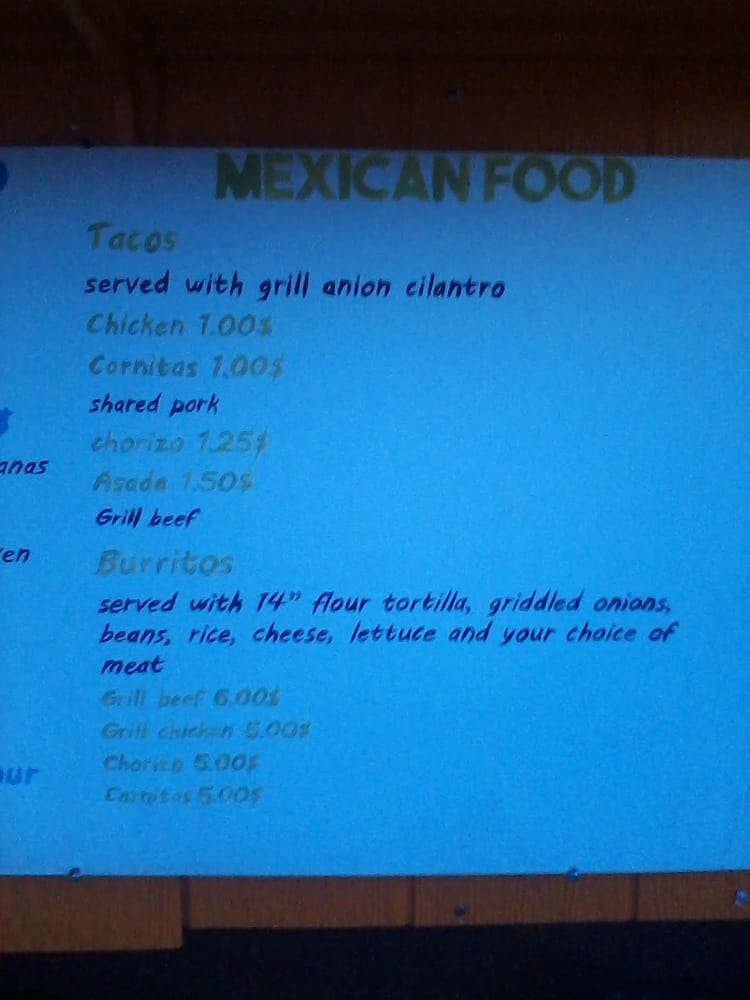 MEXICAN FOOD
Tacos
served with grill anion cilantro
Chicken 1.00$
Cornitas 1.00$
shared pork
chorizo 1.25$
anas
Asada 1.50$
Grill beef
en
Burritos
served with 14" flour tortilla, griddled onions,
beans, rice, cheese, lettuce and your choice of
meat
Grill beef 6.00$
Grill chicken 5.00$
Chorizo 5.00$
our
Carnitas 5.00$